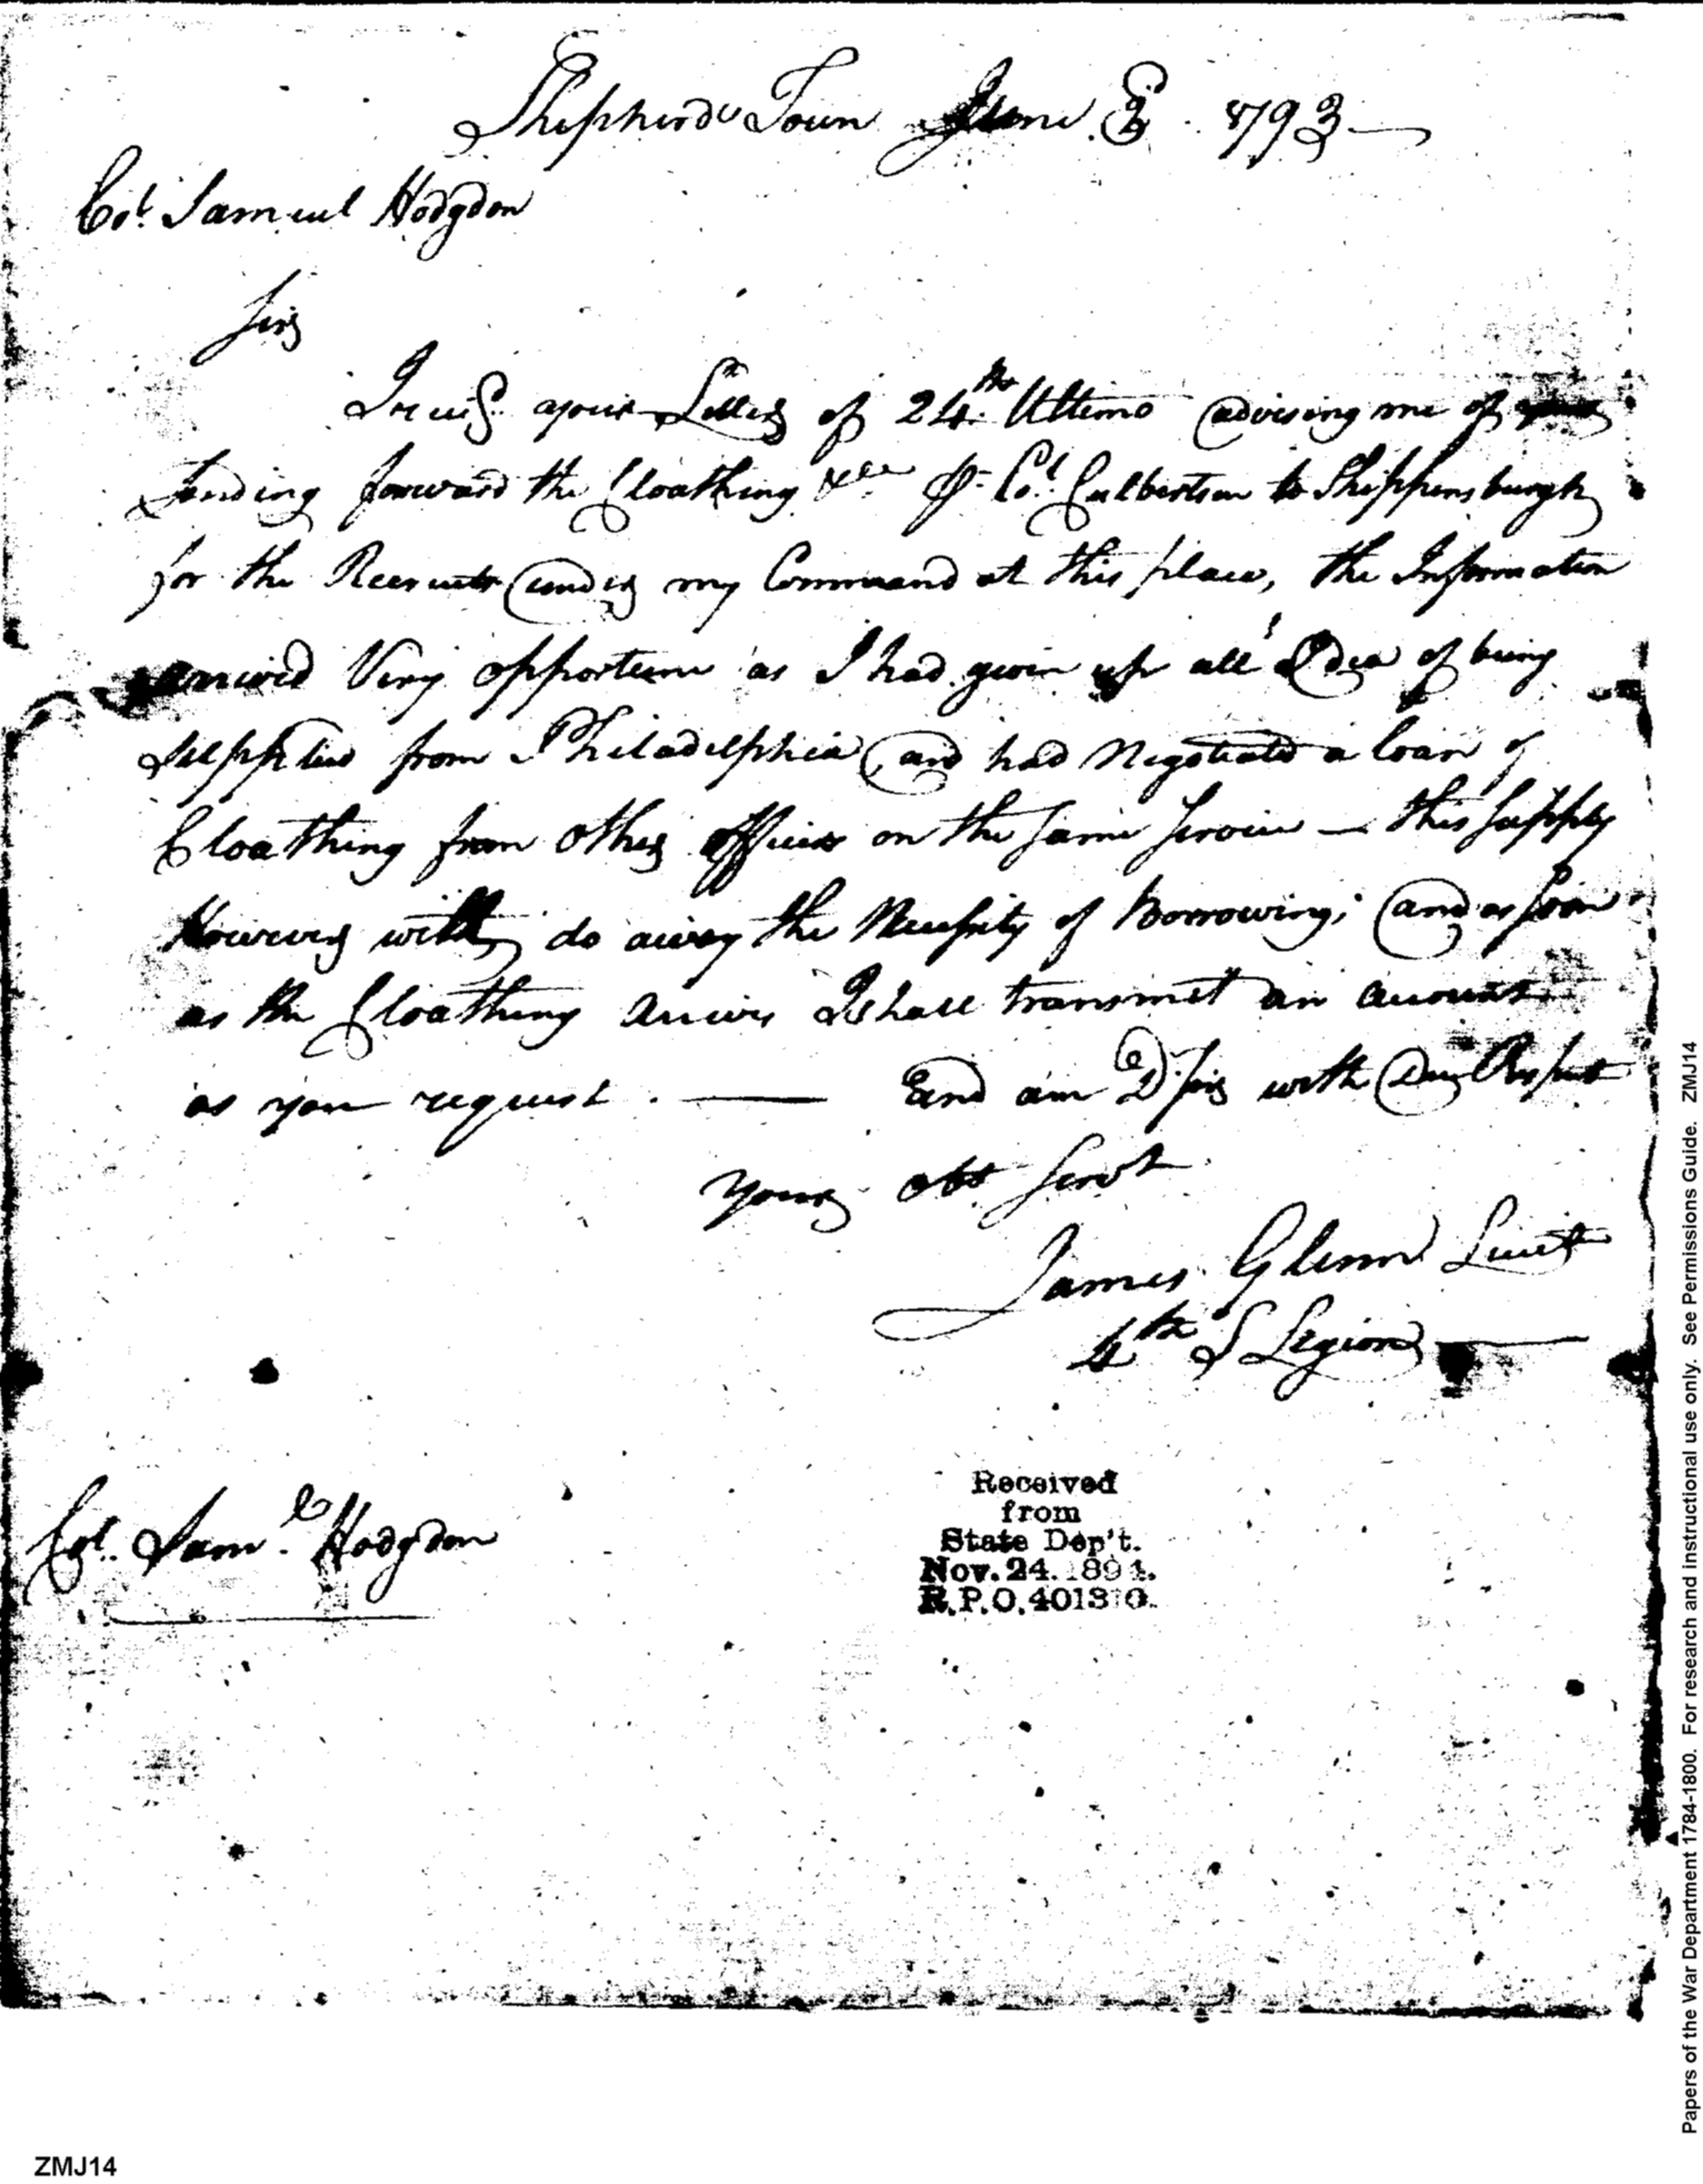 Shepherds Town June 2 1793
Col. Samuel Hodgdon
Sir
I receiv'd your Letter of 24th Ultimo advising me of
sending forward the Cloathing &c pr Col. Culbertson to Shippensburgh
for the Recruits under my Command at this place, the Information
arrived Very opportune as I had given up all Idea of being
supplied from Philadelphia, and had Negotiated a loan of
Cloathing from other officers on the same service — this supply
However will do away the Necessity of Borrowing; and as soon
as the Cloathing arrives I shall transmit an account
as you request. — And am D Sir with Due Respect
your obt Servt
James Glenn Lieut
4th S Legion
Col. Saml Hodgdon
Received
from
State Dep't.
Nov. 24. 1894.
R.P.O. 401370.
Papers of the War Department 1784-1800. For research and instructional use only. See Permissions Guide. ZMJ14
ZMJ14